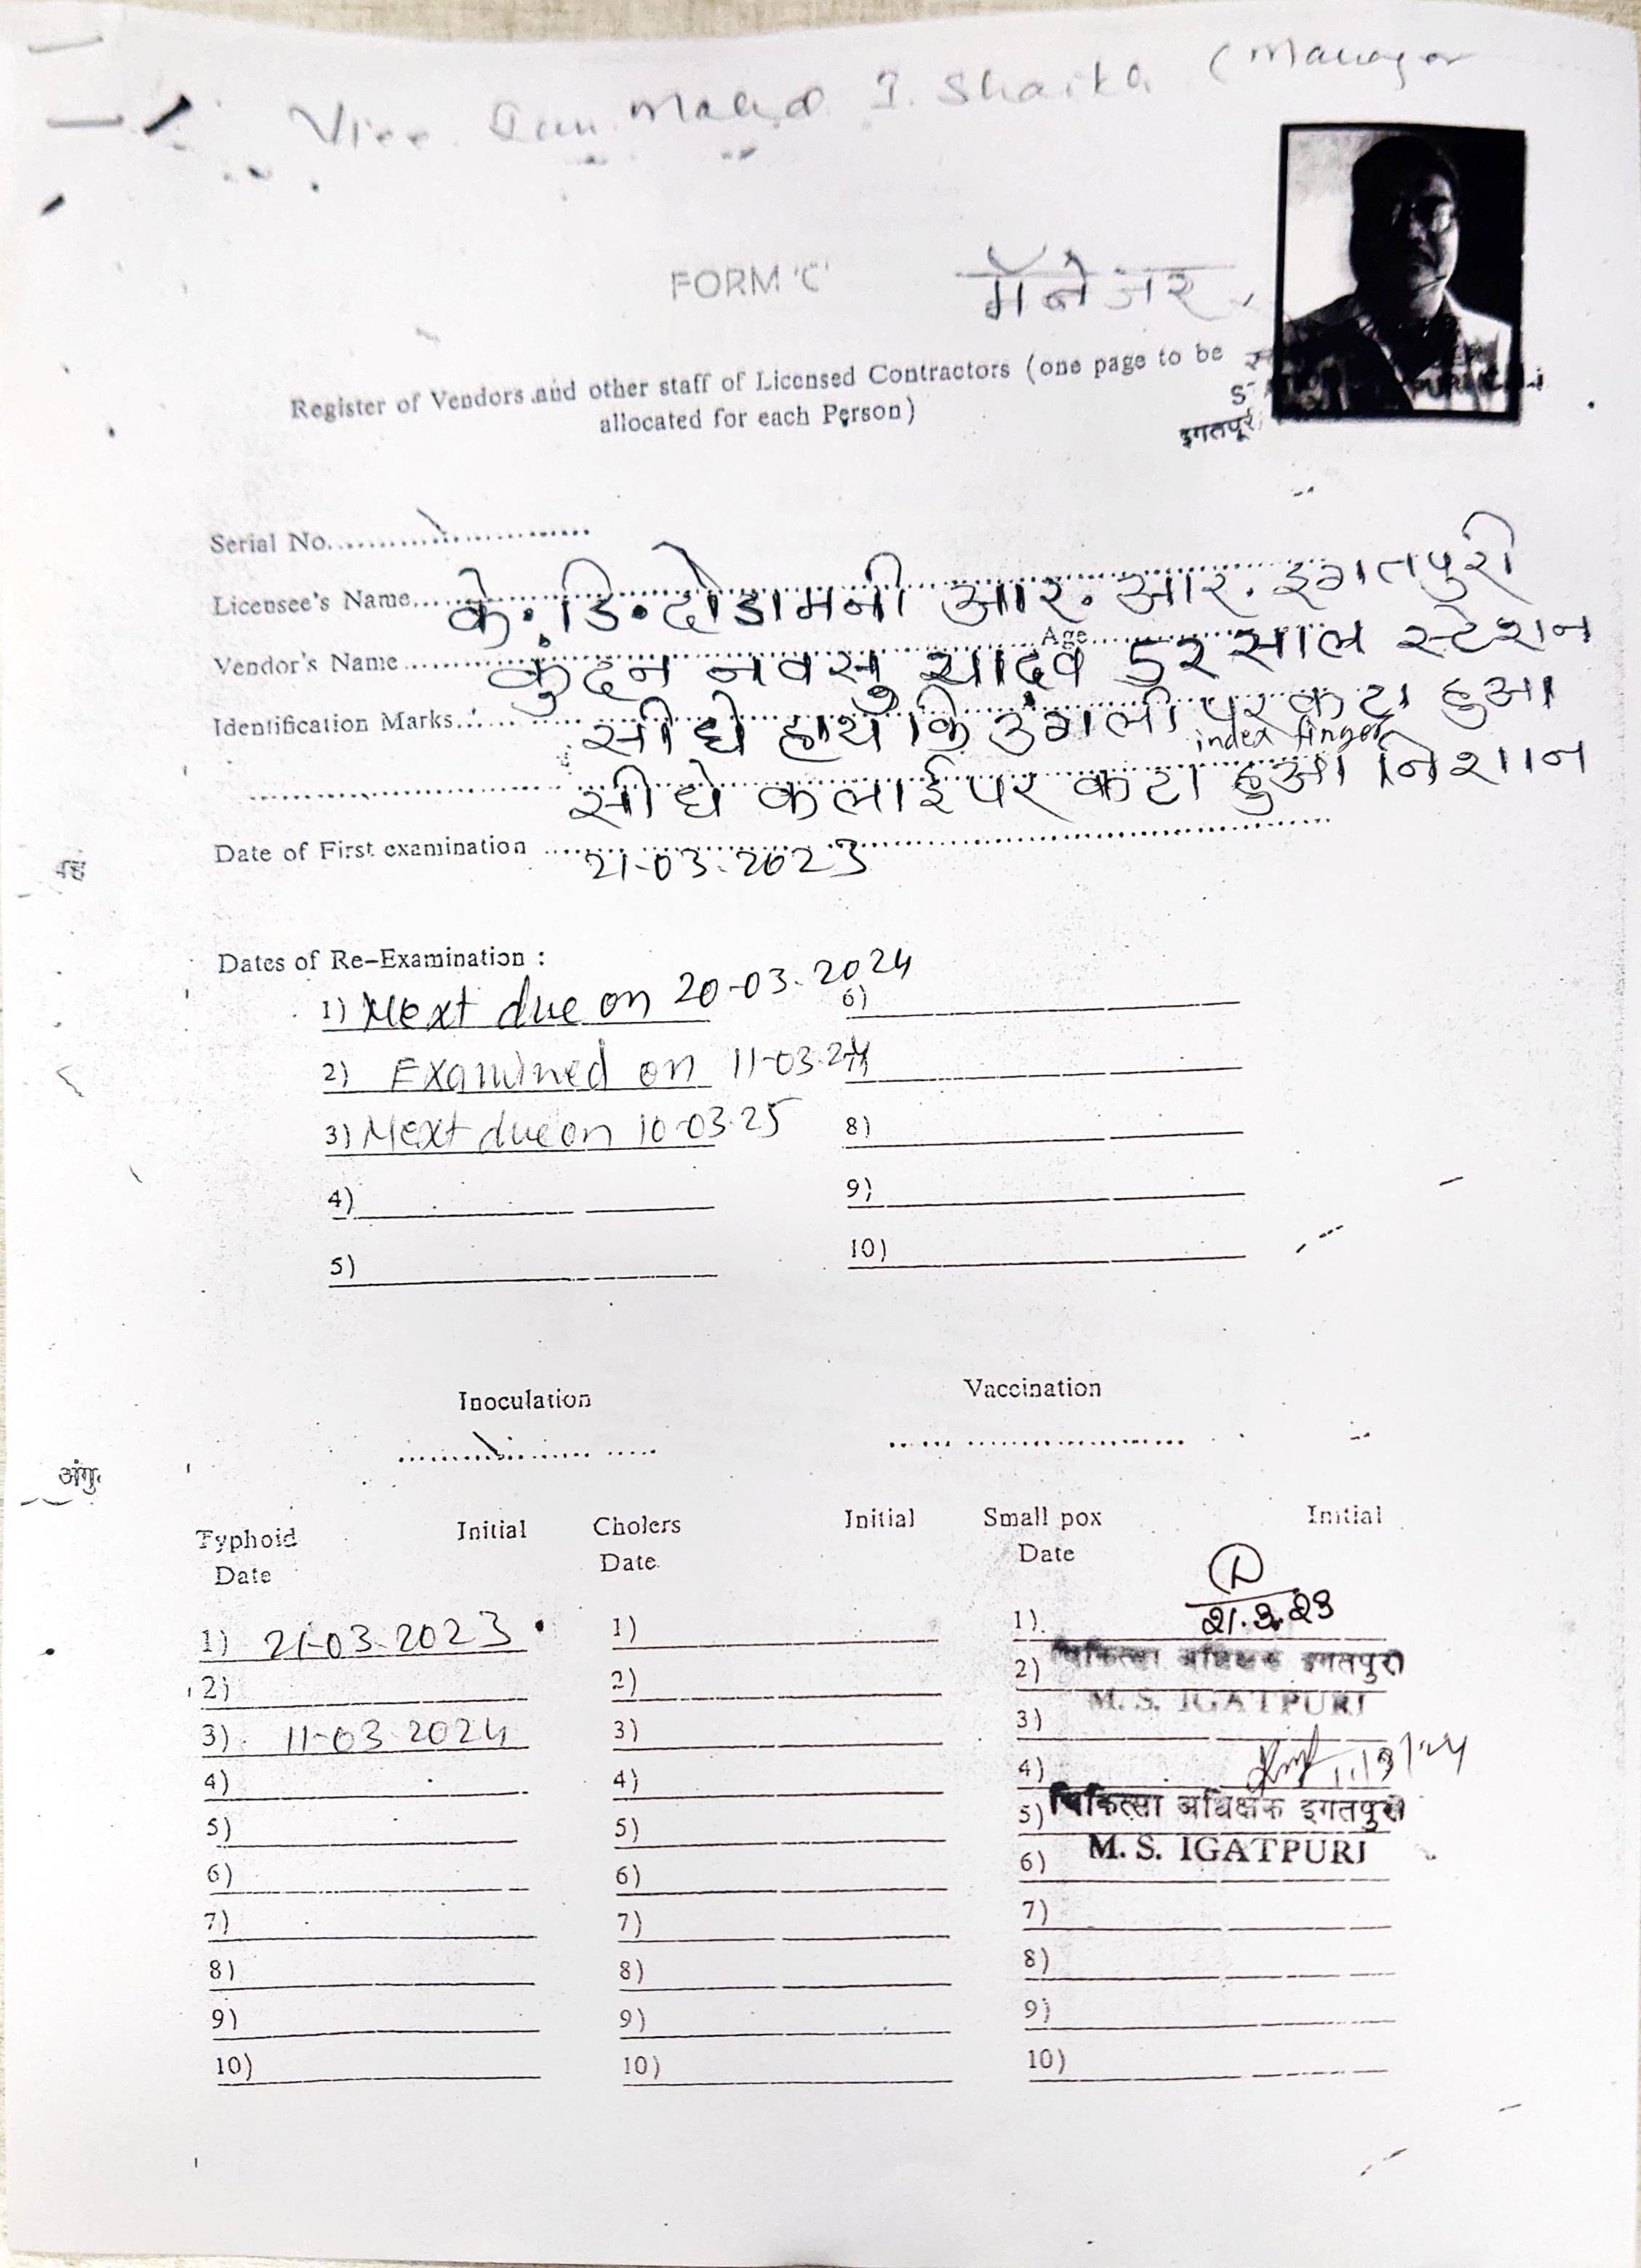 Vice Mahd I. Shaikh (Manager
FORM 'C'
मॅनेजर
Register of Vendors and other staff of Licensed Contractors (one page to be
allocated for each Person)
इगतपुरी
Serial No.
Licensee's Name के. डि. दोडामनी आर. आर. इगतपुरी
Vendor's Name कुंदन नवसु यादव Age 52 साल स्टेशन
Identification Marks सीधे हाथ कि उंगली पर कटा हुआ
index finger
सीधे कलाई पर कटा हुआ निशान
Date of First examination 21-03-2023
Dates of Re-Examination :
1) Next due on 20-03-2024
6)
2) Examined on 11-03-24
3) Next due on 10-03-25
8)
4)
9)
5)
10)
Inoculation Vaccination
अंगु
Typhoid Initial Cholers Initial Small pox Initial
Date Date Date
1) 21-03-2023 1) 1) 21.3.23
2) 2) 2) चिकित्सा अधिक्षक इगतपुरी
M. S. IGATPURI
3) 11-03-2024 3) 3)
4) 4) 4)
5) 5) 5) चिकित्सा अधिक्षक इगतपुरी
6) 6) 6) M. S. IGATPURI
7) 7) 7)
8) 8) 8)
9) 9) 9)
10) 10) 10)